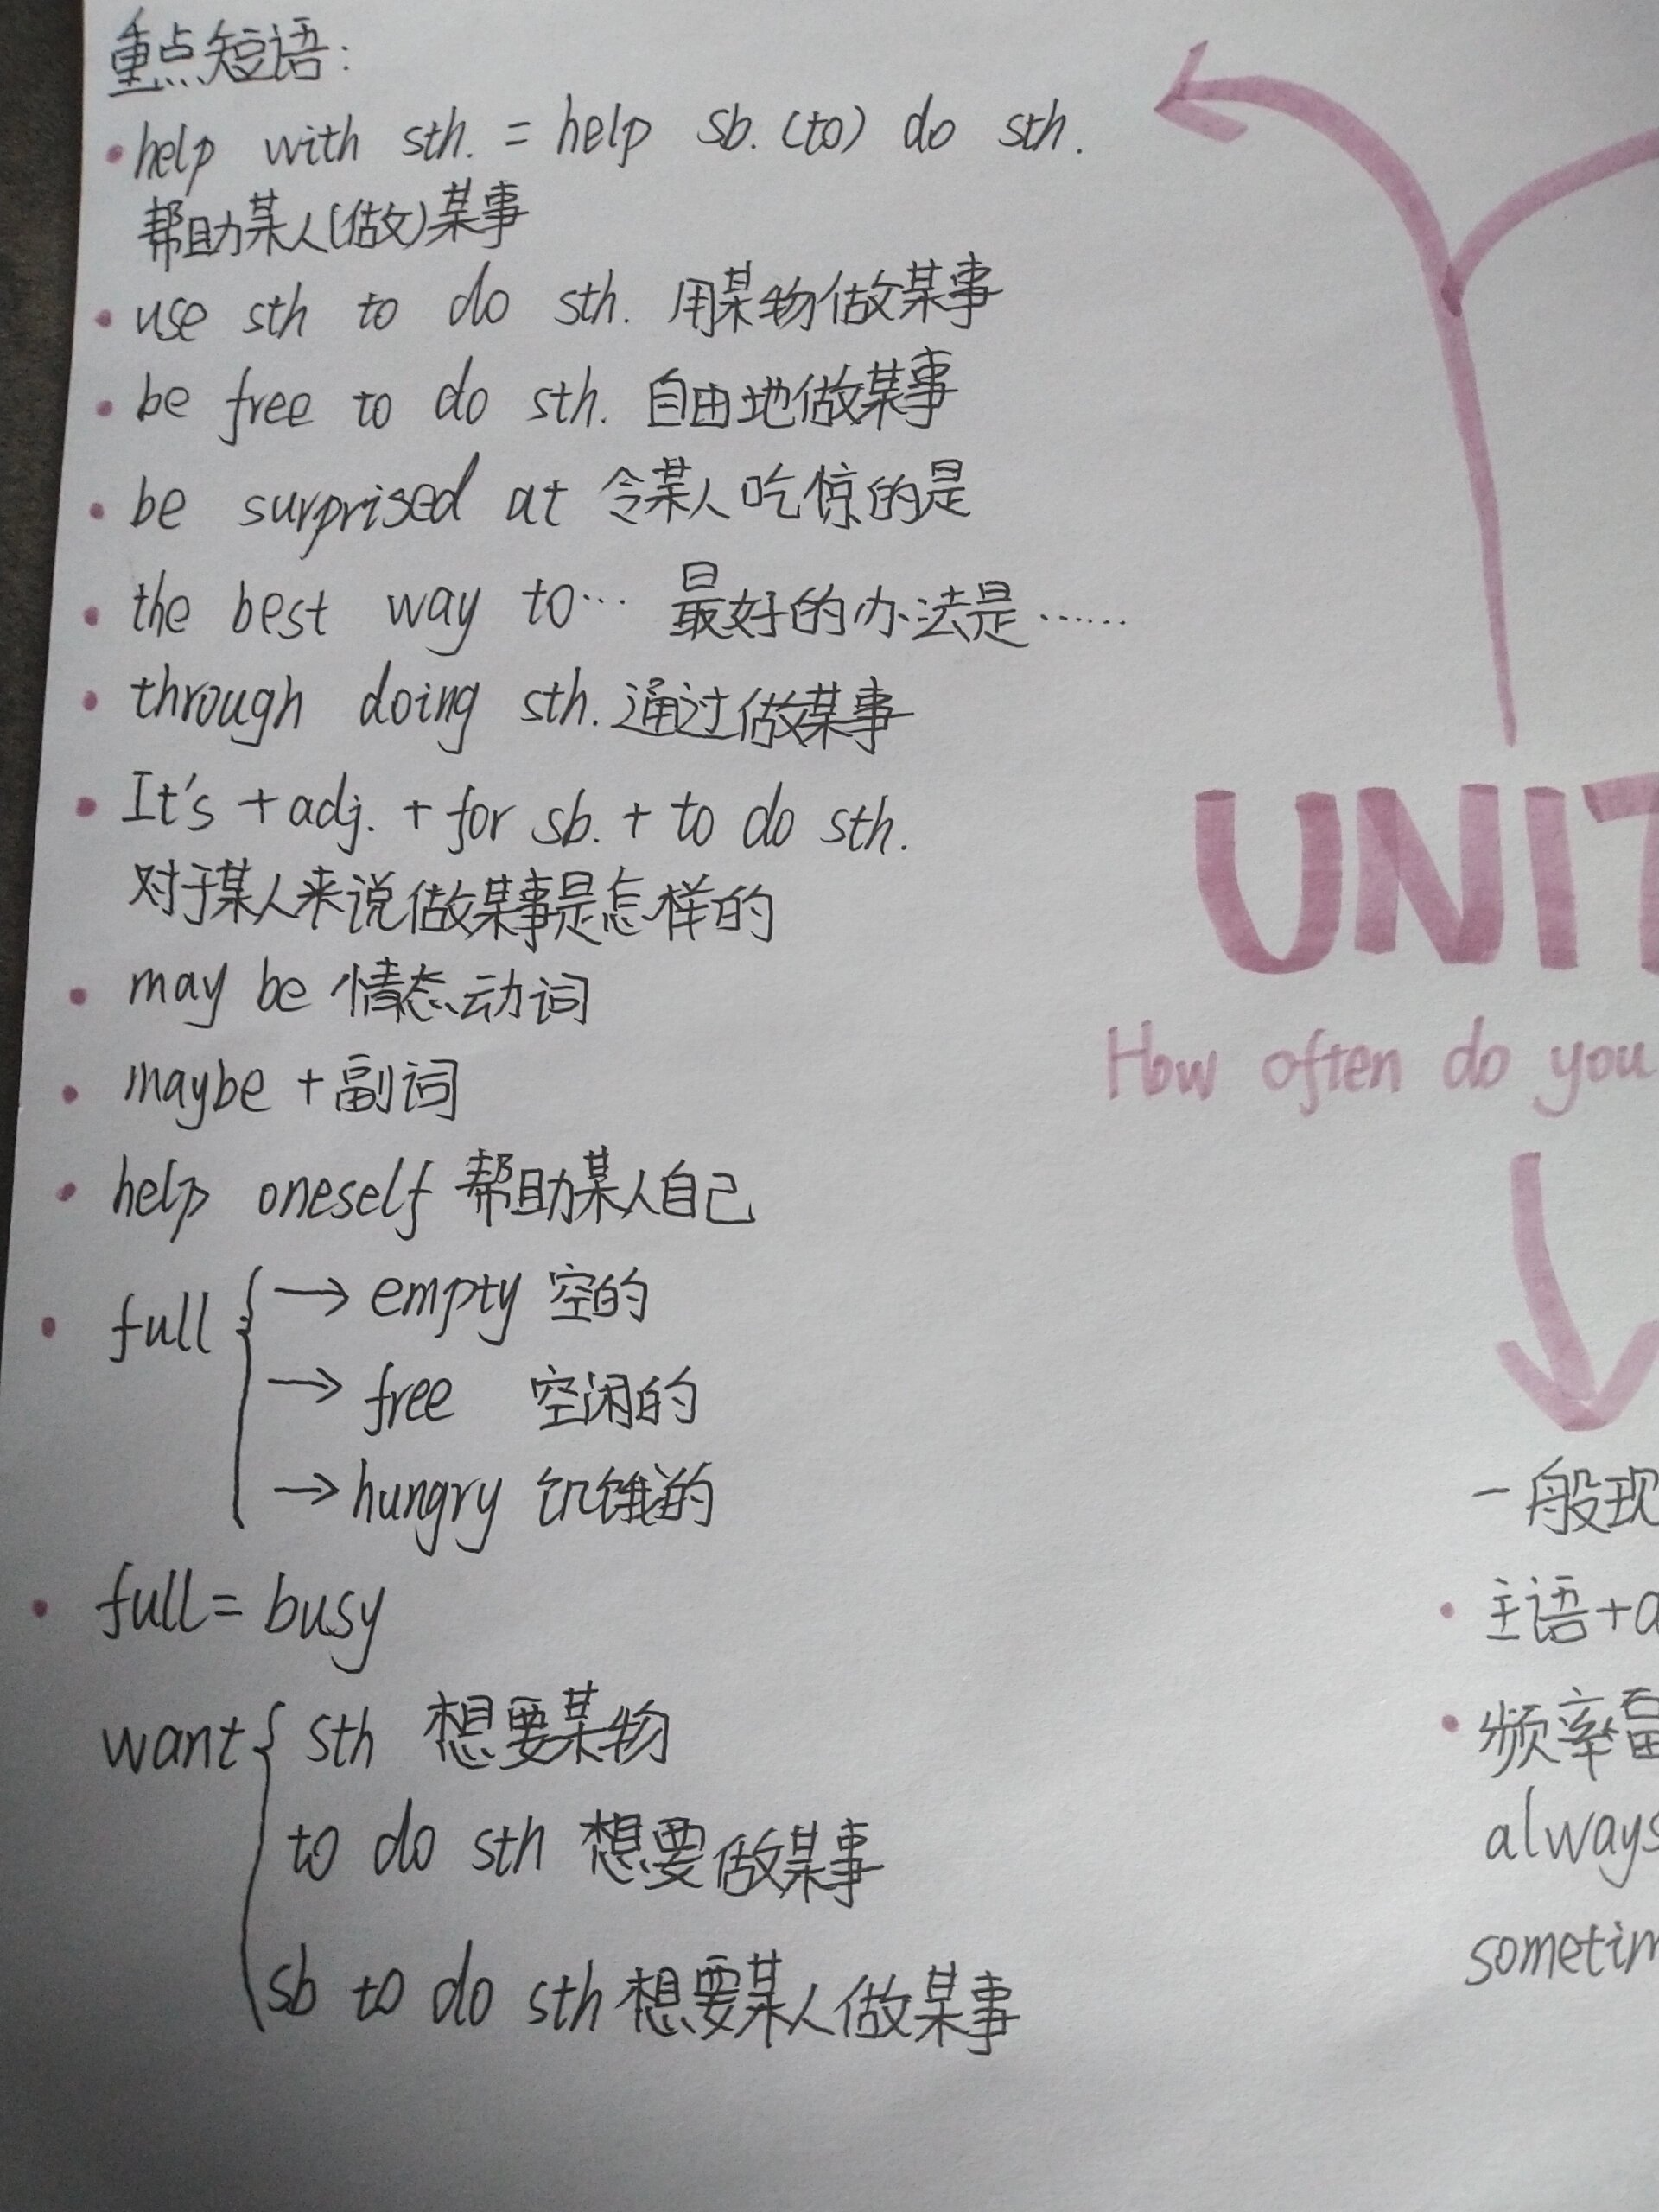 重点短语:
·help with sth. = help sb. (to) do sth.
帮助某人(做)某事
·use sth to do sth. 用某物做某事
·be free to do sth. 自由地做某事
·be surprised at 令某人吃惊的是
·the best way to… 最好的办法是……
·through doing sth. 通过做某事
·It's + adj. + for sb. + to do sth.
对于某人来说做某事是怎样的
·may be 情态动词
·maybe + 副词
·help oneself 帮助某人自己
·full { → empty 空的
→ free 空闲的
→ hungry 饥饿的
·full = busy
want { sth 想要某物
to do sth 想要做某事
sb to do sth 想要某人做某事
UNIT
How often do you
一般现
·主语+a
·频率副
always
sometim